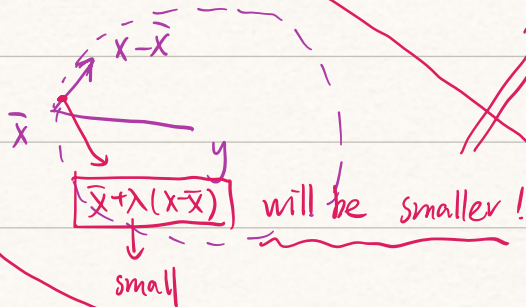 x-x̄
x̄
y
x̄+λ(x-x̄) will be smaller!
small